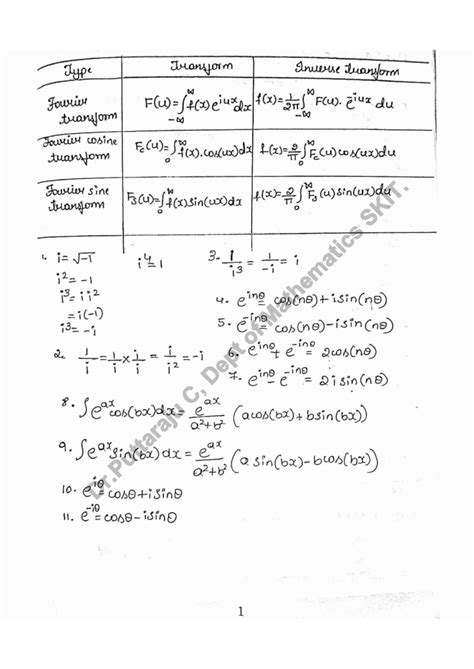 Type Transform Inverse transform
Fourier transform F(u)=∫_{-∞}^{∞} f(x) e^{iux} dx f(x)=1/2π ∫_{-∞}^{∞} F(u). e^{-iux} du
Fourier cosine transform Fc(u)=∫_0^∞ f(x).cos(ux)dx f(x)=2/π ∫_0^∞ Fc(u)cos(ux)du
Fourier sine transform Fs(u)=∫_0^∞ f(x)sin(ux)dx f(x)=2/π ∫_0^∞ Fs(u)sin(ux)du
1. i=√-1 i⁴=1 3. 1/i³ = 1/-i = i
i²=-1
i³=i i²
=i(-1)
i³=-i
2. 1/i = 1/i × i/i = i/i² = -i
4. e^{inθ} = cos(nθ)+isin(nθ)
5. e^{-inθ} = cos(nθ)-isin(nθ)
6. e^{inθ}+e^{-inθ} = 2cos(nθ)
7. e^{inθ}-e^{-inθ} = 2isin(nθ)
8. ∫e^{ax}cos(bx)dx = e^{ax}/(a²+b²) (acos(bx)+bsin(bx))
9. ∫e^{ax}sin(bx)dx = e^{ax}/(a²+b²) (a sin(bx)-bcos(bx))
10. e^{iθ}=cosθ+isinθ
11. e^{-iθ}=cosθ-isinθ
Dr.Puttaraju C, Dept of Mathematics SKIT.
1